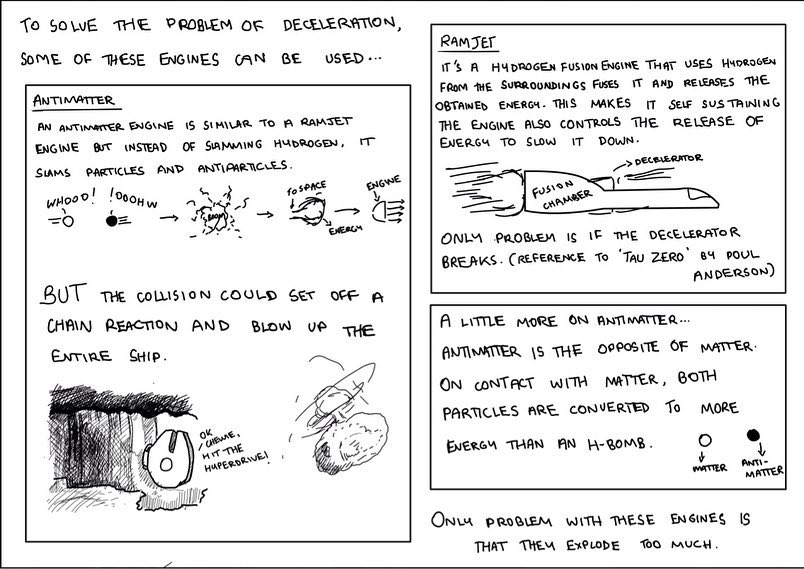 TO SOLVE THE PROBLEM OF DECELERATION,
SOME OF THESE ENGINES CAN BE USED...
ANTIMATTER
AN ANTIMATTER ENGINE IS SIMILAR TO A RAMJET
ENGINE BUT INSTEAD OF SLAMMING HYDROGEN, IT
SLAMS PARTICLES AND ANTIPARTICLES.
WHOOO! !OOOHW
BOOM
TO SPACE
ENERGY
ENGINE
BUT THE COLLISION COULD SET OFF A
CHAIN REACTION AND BLOW UP THE
ENTIRE SHIP.
OK
CHEWIE,
HIT THE
HYPERDRIVE!
RAMJET
IT'S A HYDROGEN FUSION ENGINE THAT USES HYDROGEN
FROM THE SURROUNDINGS FUSES IT AND RELEASES THE
OBTAINED ENERGY. THIS MAKES IT SELF SUSTAINING
THE ENGINE ALSO CONTROLS THE RELEASE OF
ENERGY TO SLOW IT DOWN.
DECELERATOR
FUSION
CHAMBER
ONLY PROBLEM IS IF THE DECELERATOR
BREAKS. (REFERENCE TO 'TAU ZERO' BY POUL
ANDERSON)
A LITTLE MORE ON ANTIMATTER...
ANTIMATTER IS THE OPPOSITE OF MATTER.
ON CONTACT WITH MATTER, BOTH
PARTICLES ARE CONVERTED TO MORE
ENERGY THAN AN H-BOMB.
MATTER
ANTI-
MATTER
ONLY PROBLEM WITH THESE ENGINES IS
THAT THEY EXPLODE TOO MUCH.